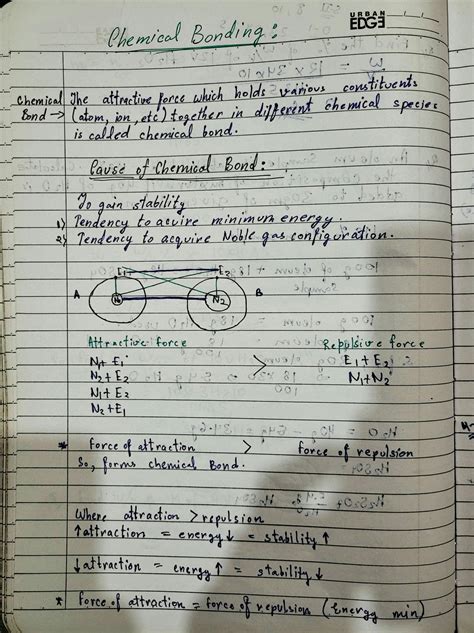 URBAN
EDGE
Chemical Bonding:
Chemical Bond → The attractive force which holds various constituents
(atom, ion, etc) together in different chemical species
is called chemical bond.
Cause of Chemical Bond:
To gain stability
1) Tendency to acuire minimum energy.
2) Tendency to acquire Noble gas configuration.
E1 E2
A N1 N2 B
Attractive force Repulsive force
N1 + E1 > E1 + E2
N2 + E2 N1 + N2
N1 + E2
N2 + E1
* force of attraction > force of repulsion
So, forms chemical Bond.
Where attraction > repulsion
↑ attraction = energy ↓ = stability ↑
↓ attraction = energy ↑ = stability ↓
* Force of attraction = force of repulsion (Energy min)